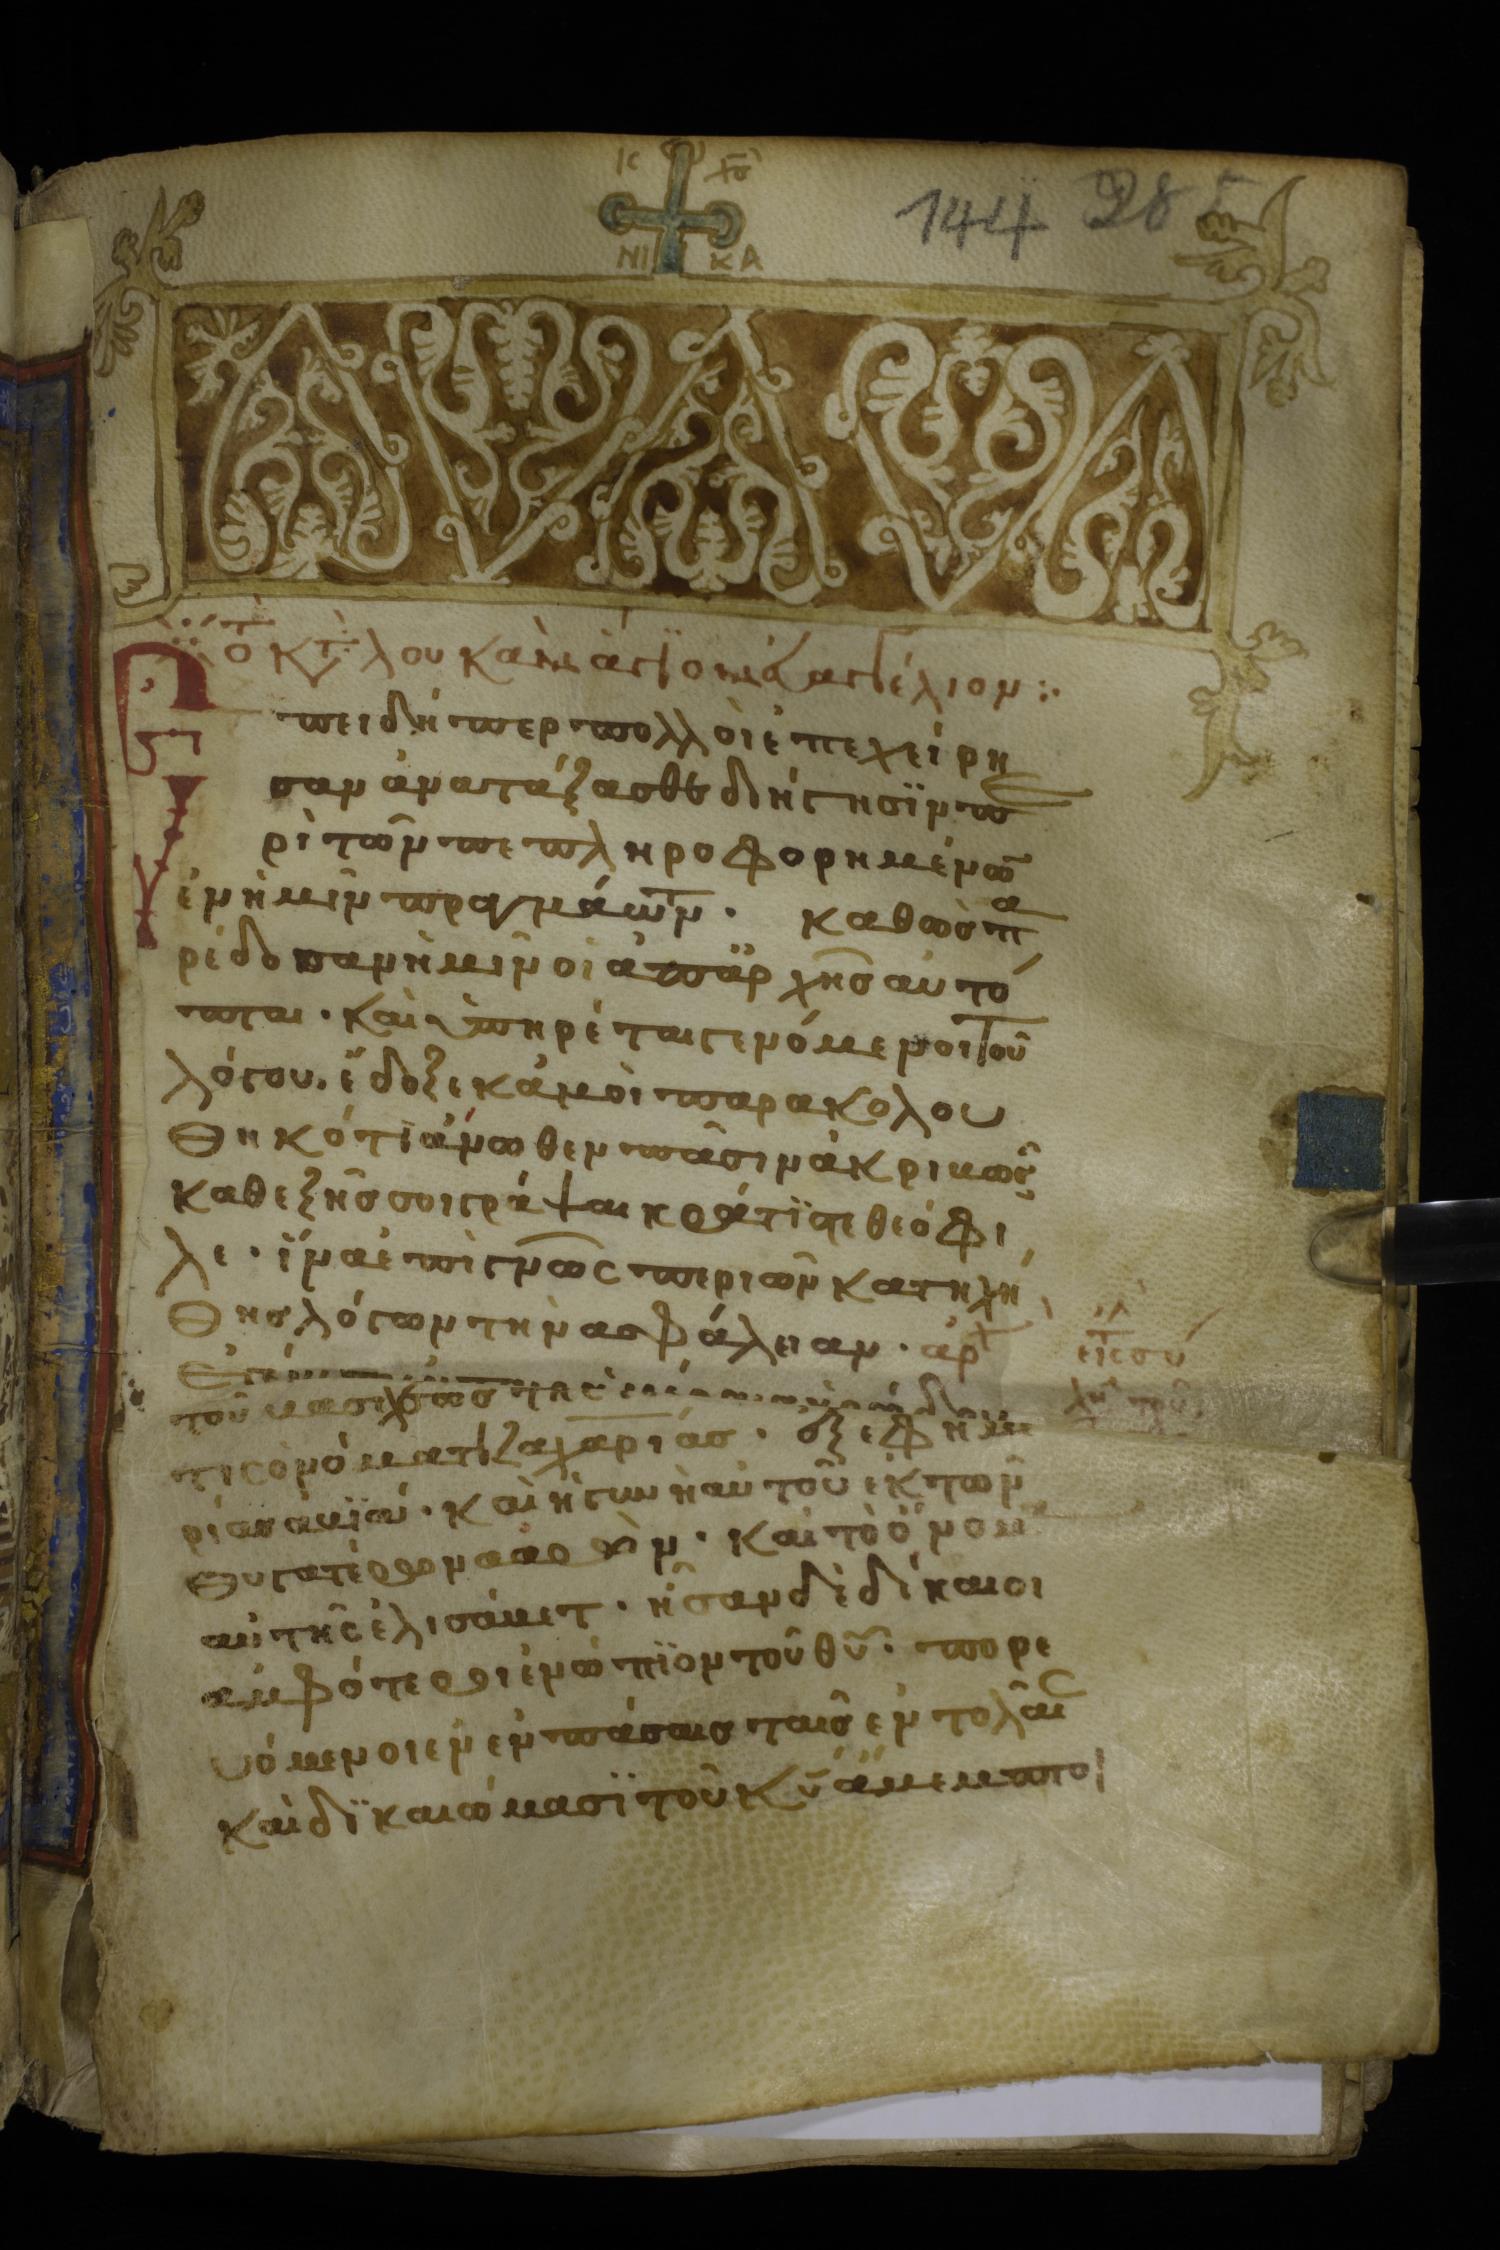 ΙϹ Χϲ
ΝΙ ΚΑ
144 285
Το κτ λου καν ἁγιον εὐαγγέλιον :·
Ἐπειδήπερ πολλοὶ ἐπεχείρη
σαν ἀνατάξασθαι διήγησϊν πε
ρὶ τῶν πεπληροφορημένων
ἐν ἡμῖν πραγμάτων · καθὼσ πα
ρέδοσαν ἡμῖν οἱ ἀπαρχῆσ αὐτό
πται · καὶ ὑπηρέται γενόμενοι τοῦ
λόγου · ἔδοξε κἀμοὶ παρακολου
θηκότι ἄνωθεν πᾶσιν ἀκριβῶσ
καθεξῆσ σοι γράψαι κράτϊστε θεόφι
λε · ἵνα ἐπιγνῶς περὶ ὧν κατηχή
θησ λόγων τὴν ασφάλειαν · ἀρχ
τοῦ βασιλέωσ τῆς
τις ὀνόματι ζαχαρίασ · ἐξ ἐφημε
ρίασ ἀβϊά · καὶ ἡ γυνὴ αὐτοῦ ἐκ τῶν
θυγατέρων ααρών · καὶ τὸ ὄνομα
αὐτῆς ἐλισάβετ · ἦσαν δὲ δίκαιοι
αμφότεροι ἐνώπϊον τοῦ θῦ · πορε
υόμενοι ἐν ἐν πάσαισ ταισ ἐντολαῖς
καὶ δϊκαιώμασϊ τοῦ κῦ ἄμεμπτοι